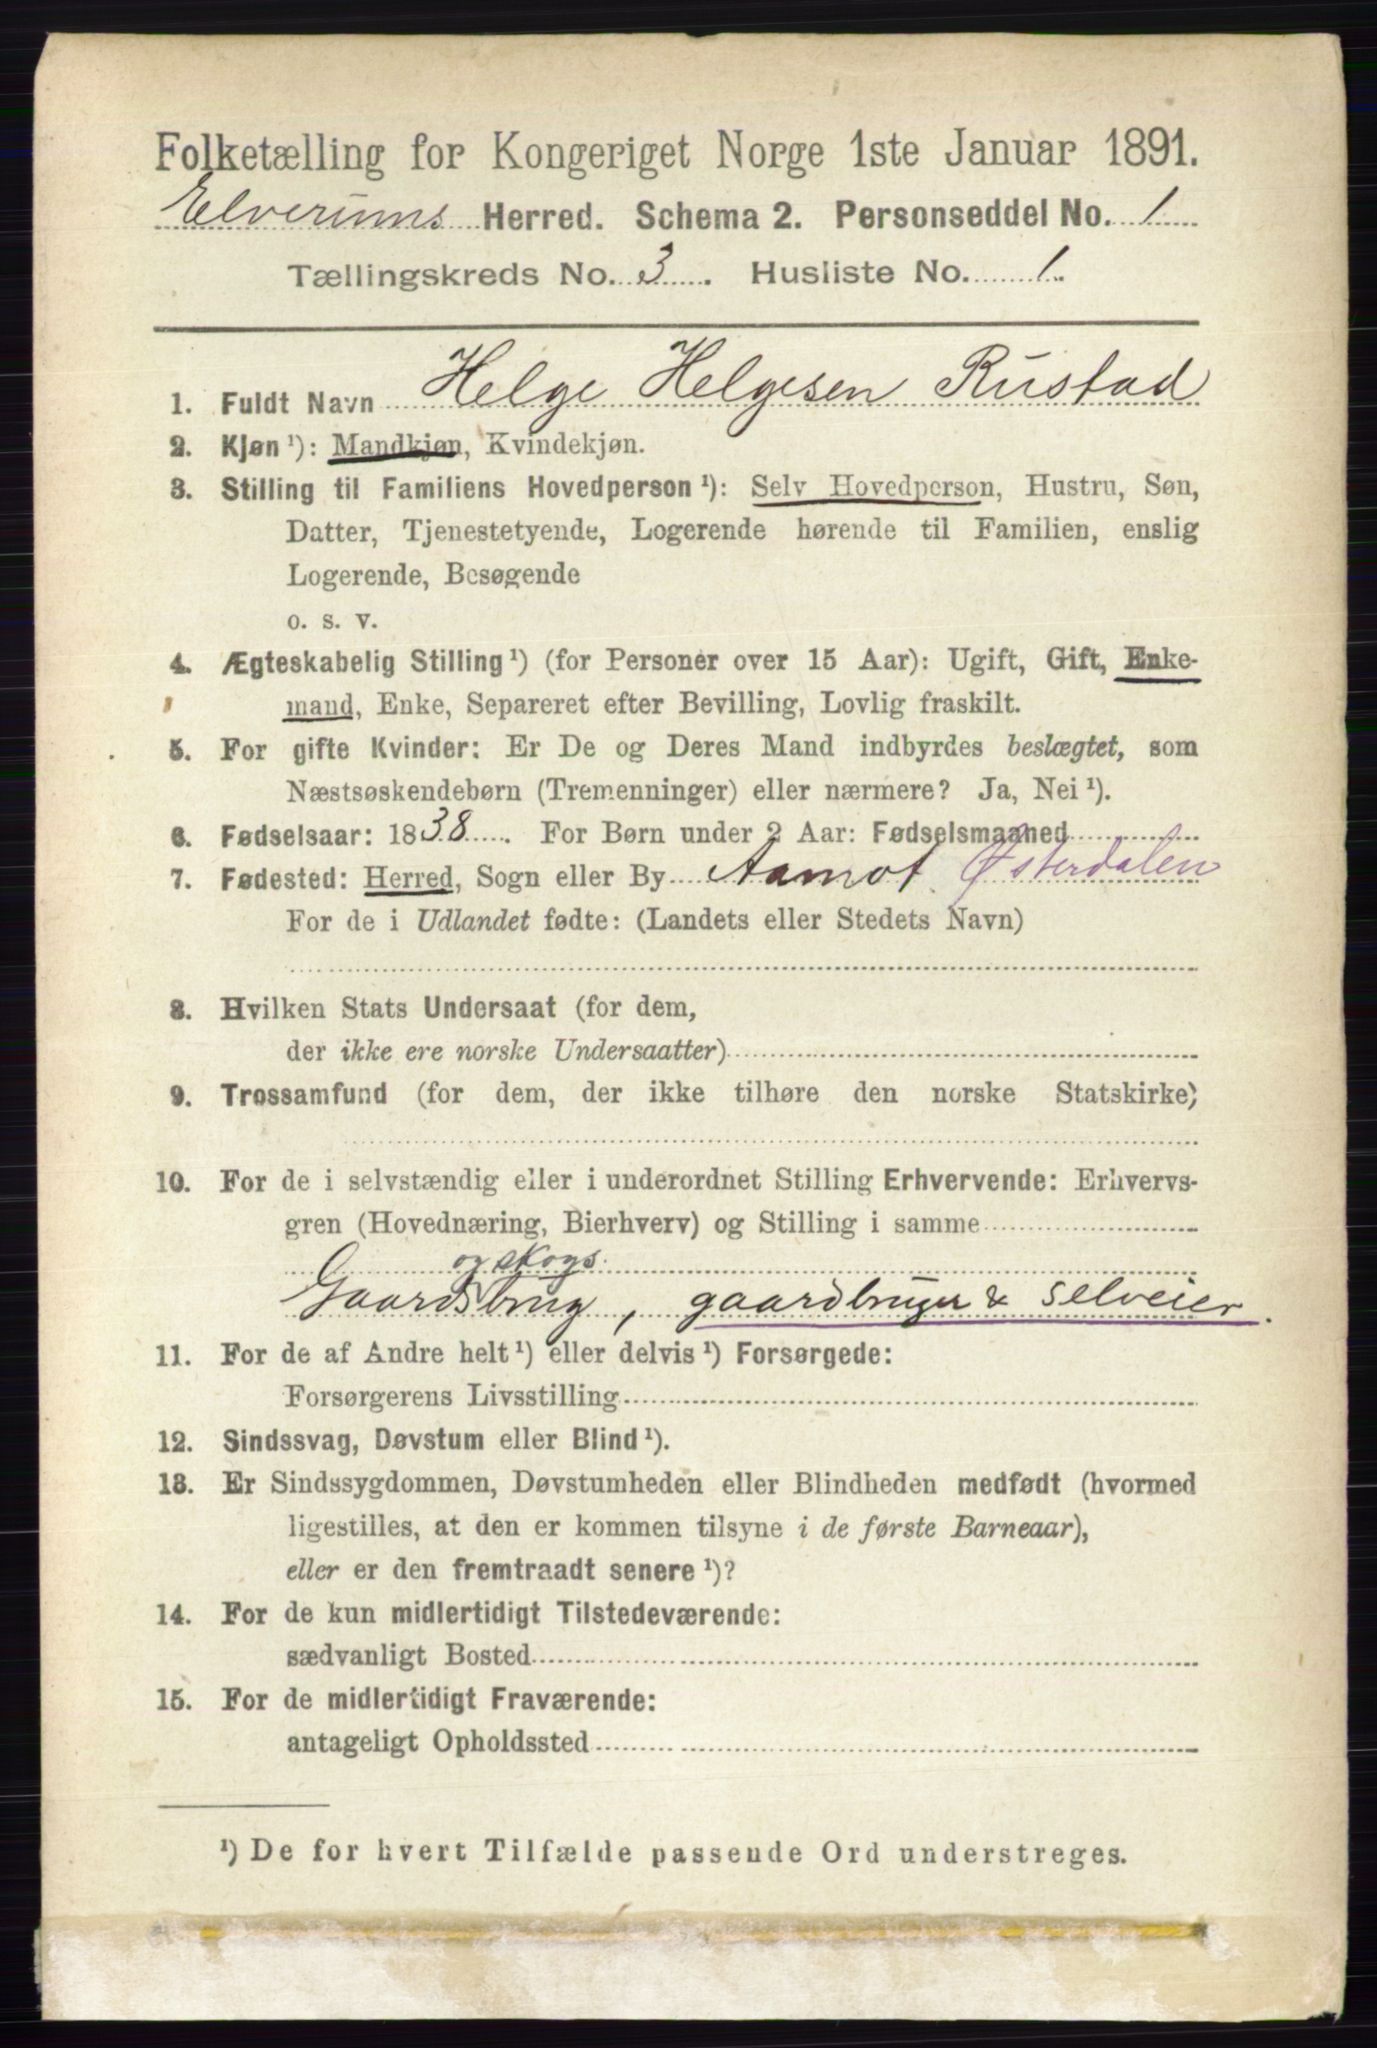 Folketælling for Kongeriget Norge 1ste Januar 1891.
Elverums Herred. Schema 2. Personseddel No. 1
Tællingskreds No. 3. Husliste No. 1.
1. Fuldt Navn Helge Helgesen Rustad
2. Kjøn ¹): Mandkjøn, Kvindekjøn.
3. Stilling til Familiens Hovedperson ¹): Selv Hovedperson, Hustru, Søn,
Datter, Tjenestetyende, Logerende hørende til Familien, enslig
Logerende, Besøgende
o. s. v.
4. Ægteskabelig Stilling ¹) (for Personer over 15 Aar): Ugift, Gift, Enke-
mand, Enke, Separeret efter Bevilling, Lovlig fraskilt.
5. For gifte Kvinder: Er De og Deres Mand indbyrdes beslægtet, som
Næstsøskendebørn (Tremenninger) eller nærmere? Ja, Nei ¹).
6. Fødselsaar: 1838. For Børn under 2 Aar: Fødselsmaaned
7. Fødested: Herred, Sogn eller By Aamot Østerdalen
For de i Udlandet fødte: (Landets eller Stedets Navn)
8. Hvilken Stats Undersaat (for dem,
der ikke ere norske Undersaatter)
9. Trossamfund (for dem, der ikke tilhøre den norske Statskirke)
10. For de i selvstændig eller i underordnet Stilling Erhvervende: Erhvervs-
gren (Hovednæring, Bierhverv) og Stilling i samme
og skogs.
Gaardsbrug, gaardbruger & selveier.
11. For de af Andre helt ¹) eller delvis ¹) Forsørgede:
Forsørgerens Livsstilling
12. Sindssvag, Døvstum eller Blind ¹).
13. Er Sindssygdommen, Døvstumheden eller Blindheden medfødt (hvormed
ligestilles, at den er kommen tilsyne i de første Barneaar),
eller er den fremtraadt senere ¹)?
14. For de kun midlertidigt Tilstedeværende:
sædvanligt Bosted
15. For de midlertidigt Fraværende:
antageligt Opholdssted
¹) De for hvert Tilfælde passende Ord understreges.